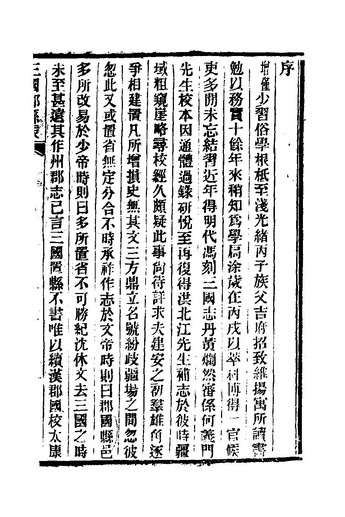 序
增僅少習俗學根柢至淺光緒丙子族父吉府招致維揚寓所讀書
勉以務實十餘年來稍知爲學局涂歲在丙戌以萃科博得一官候
更多閒未忘結習近年得明代馮刻三國志丹黃爛然審係何義門
先生校本因通體過錄研悅至再復得洪北江先生補志於彼時疆
域粗窺崖略尋校經久頗疑此事尙待詳求夫建安之初羣雄角逐
爭相建置凡所增損史無其文三方鼎立名號紛歧疆場之間忽彼
忽此又或置省無定分合不時承祚作志於文帝時則曰郡國縣邑
多所改易於少帝時則曰多所置省不可勝紀沈休文去三國之時
未至甚遠其作州郡志已言三國置縣不書唯以續漢郡國校太康
三國郡縣表